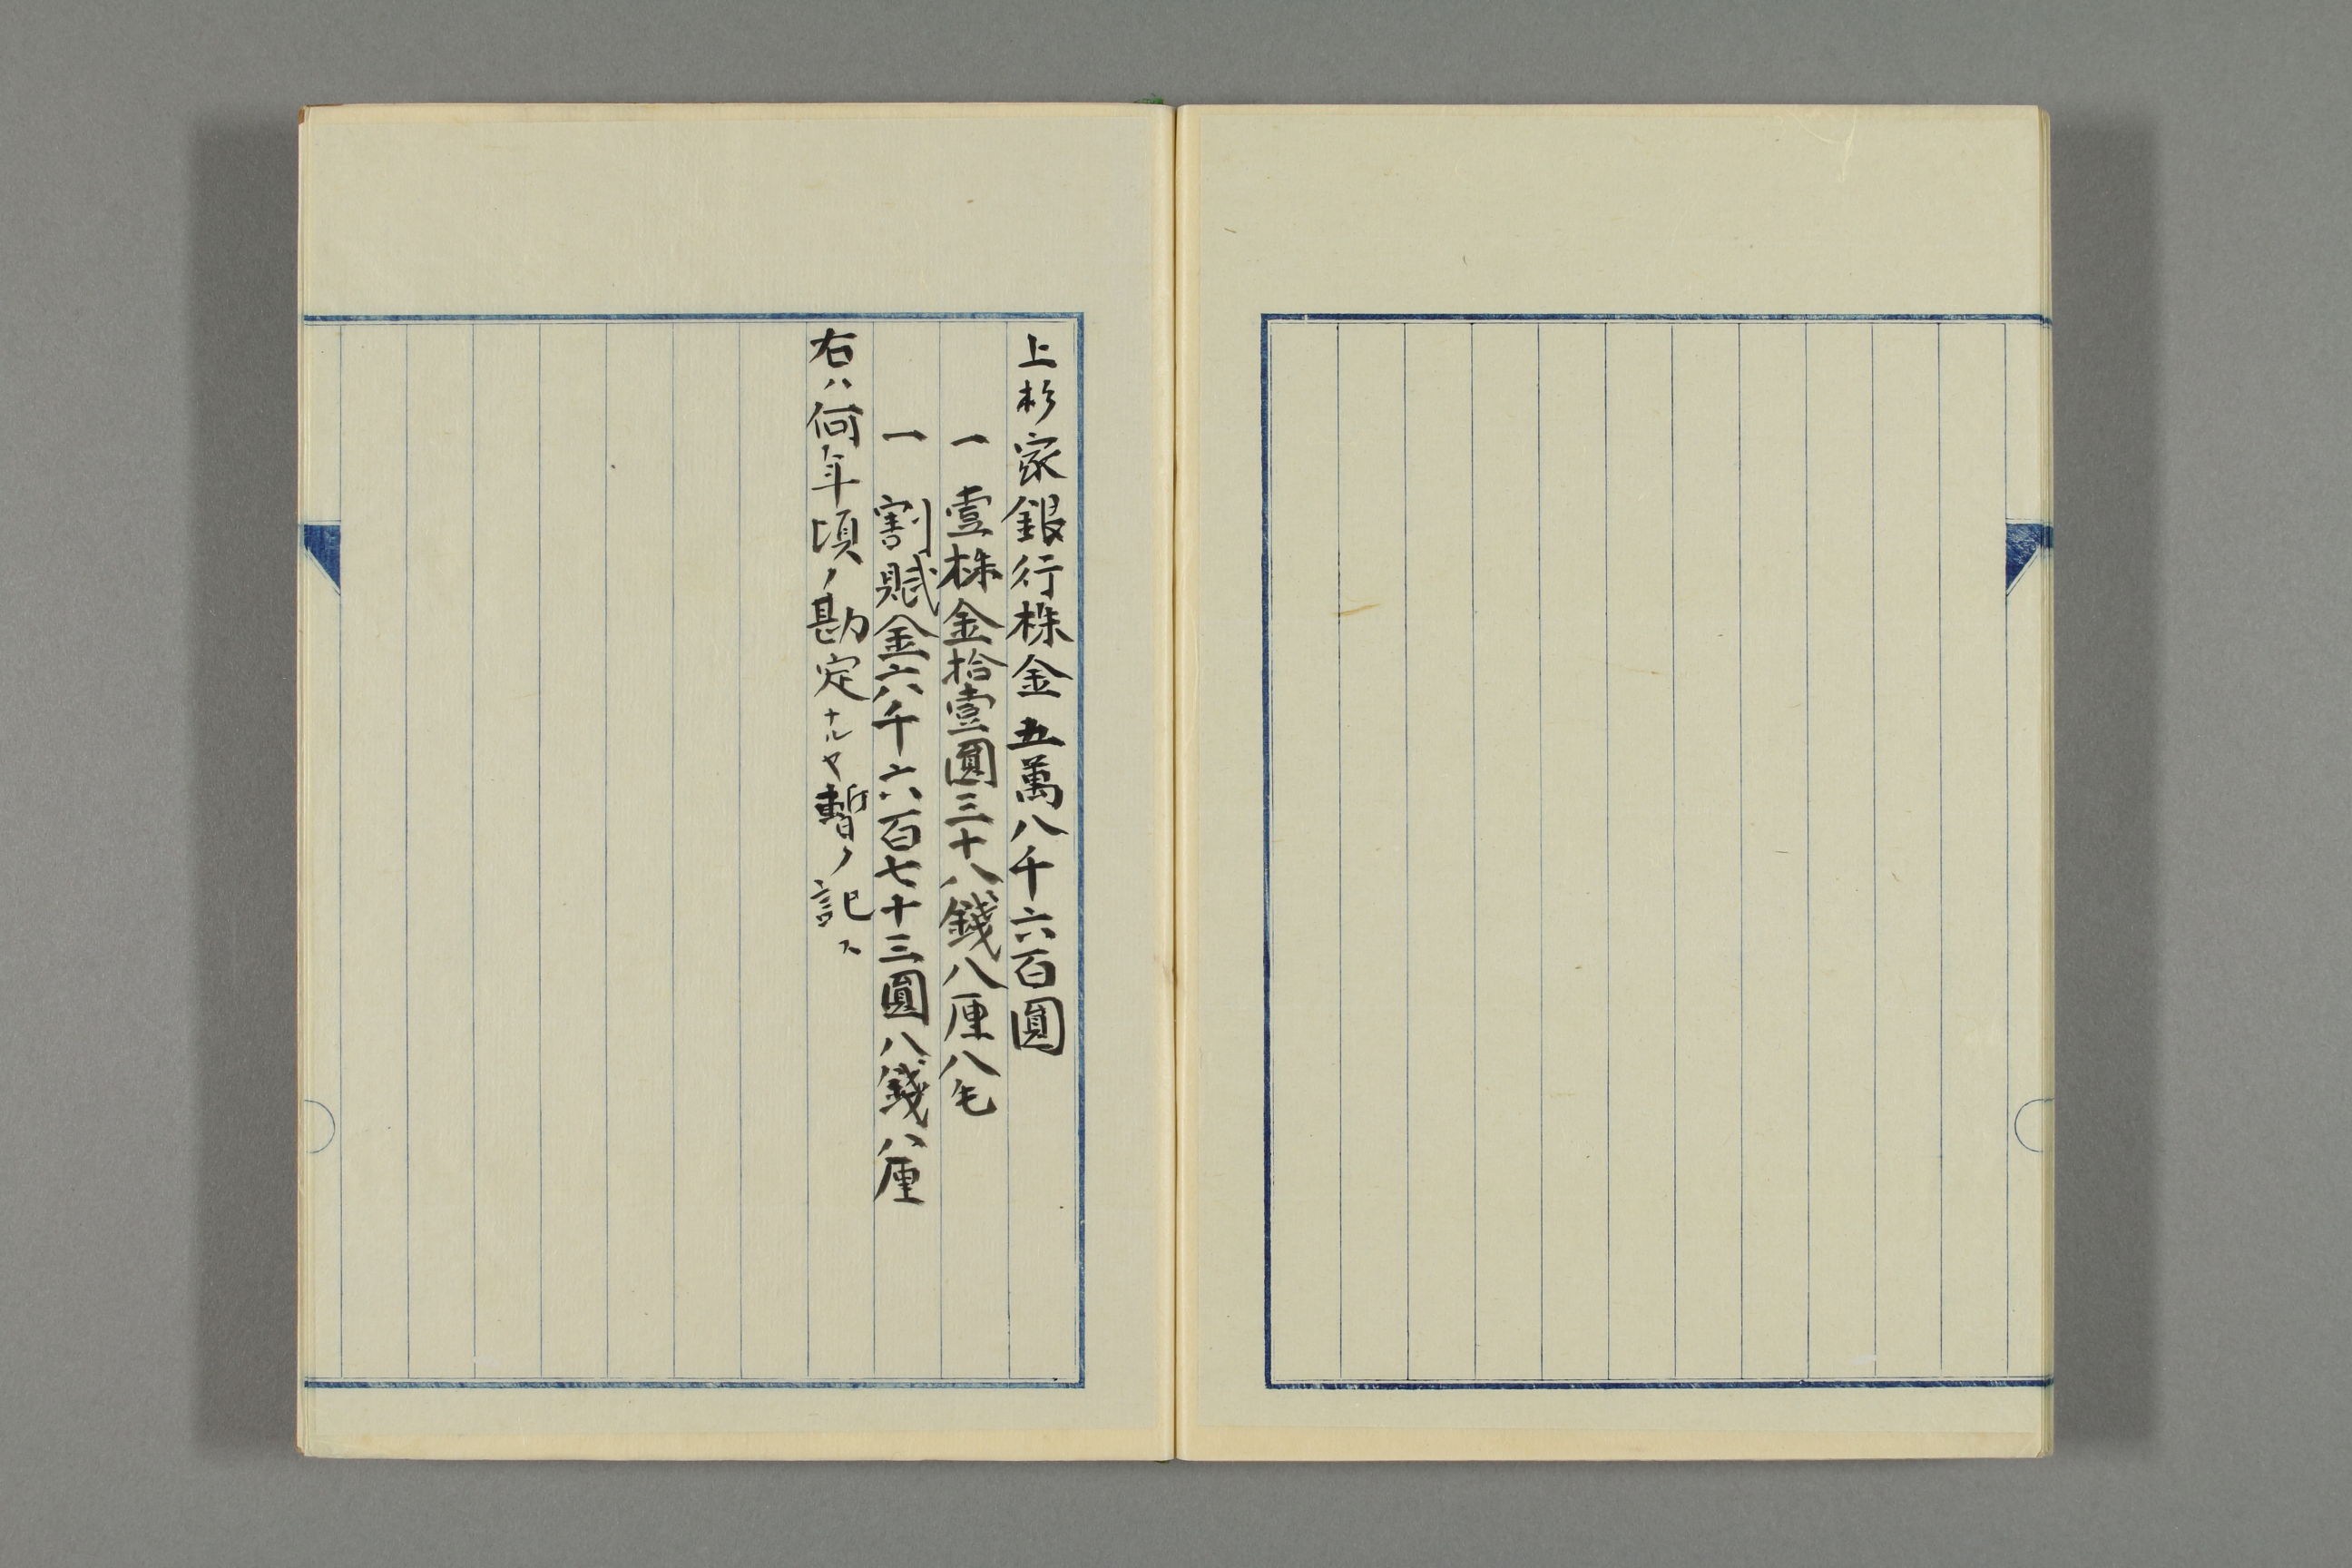 上杉家銀行株金五萬八千六百圓
一 壹株金拾壹圓三十八錢八厘八毛
一 割賦金六千六百七十三圓八錢八厘
右ハ何年頃ノ勘定ナルヤ暫ク記ス